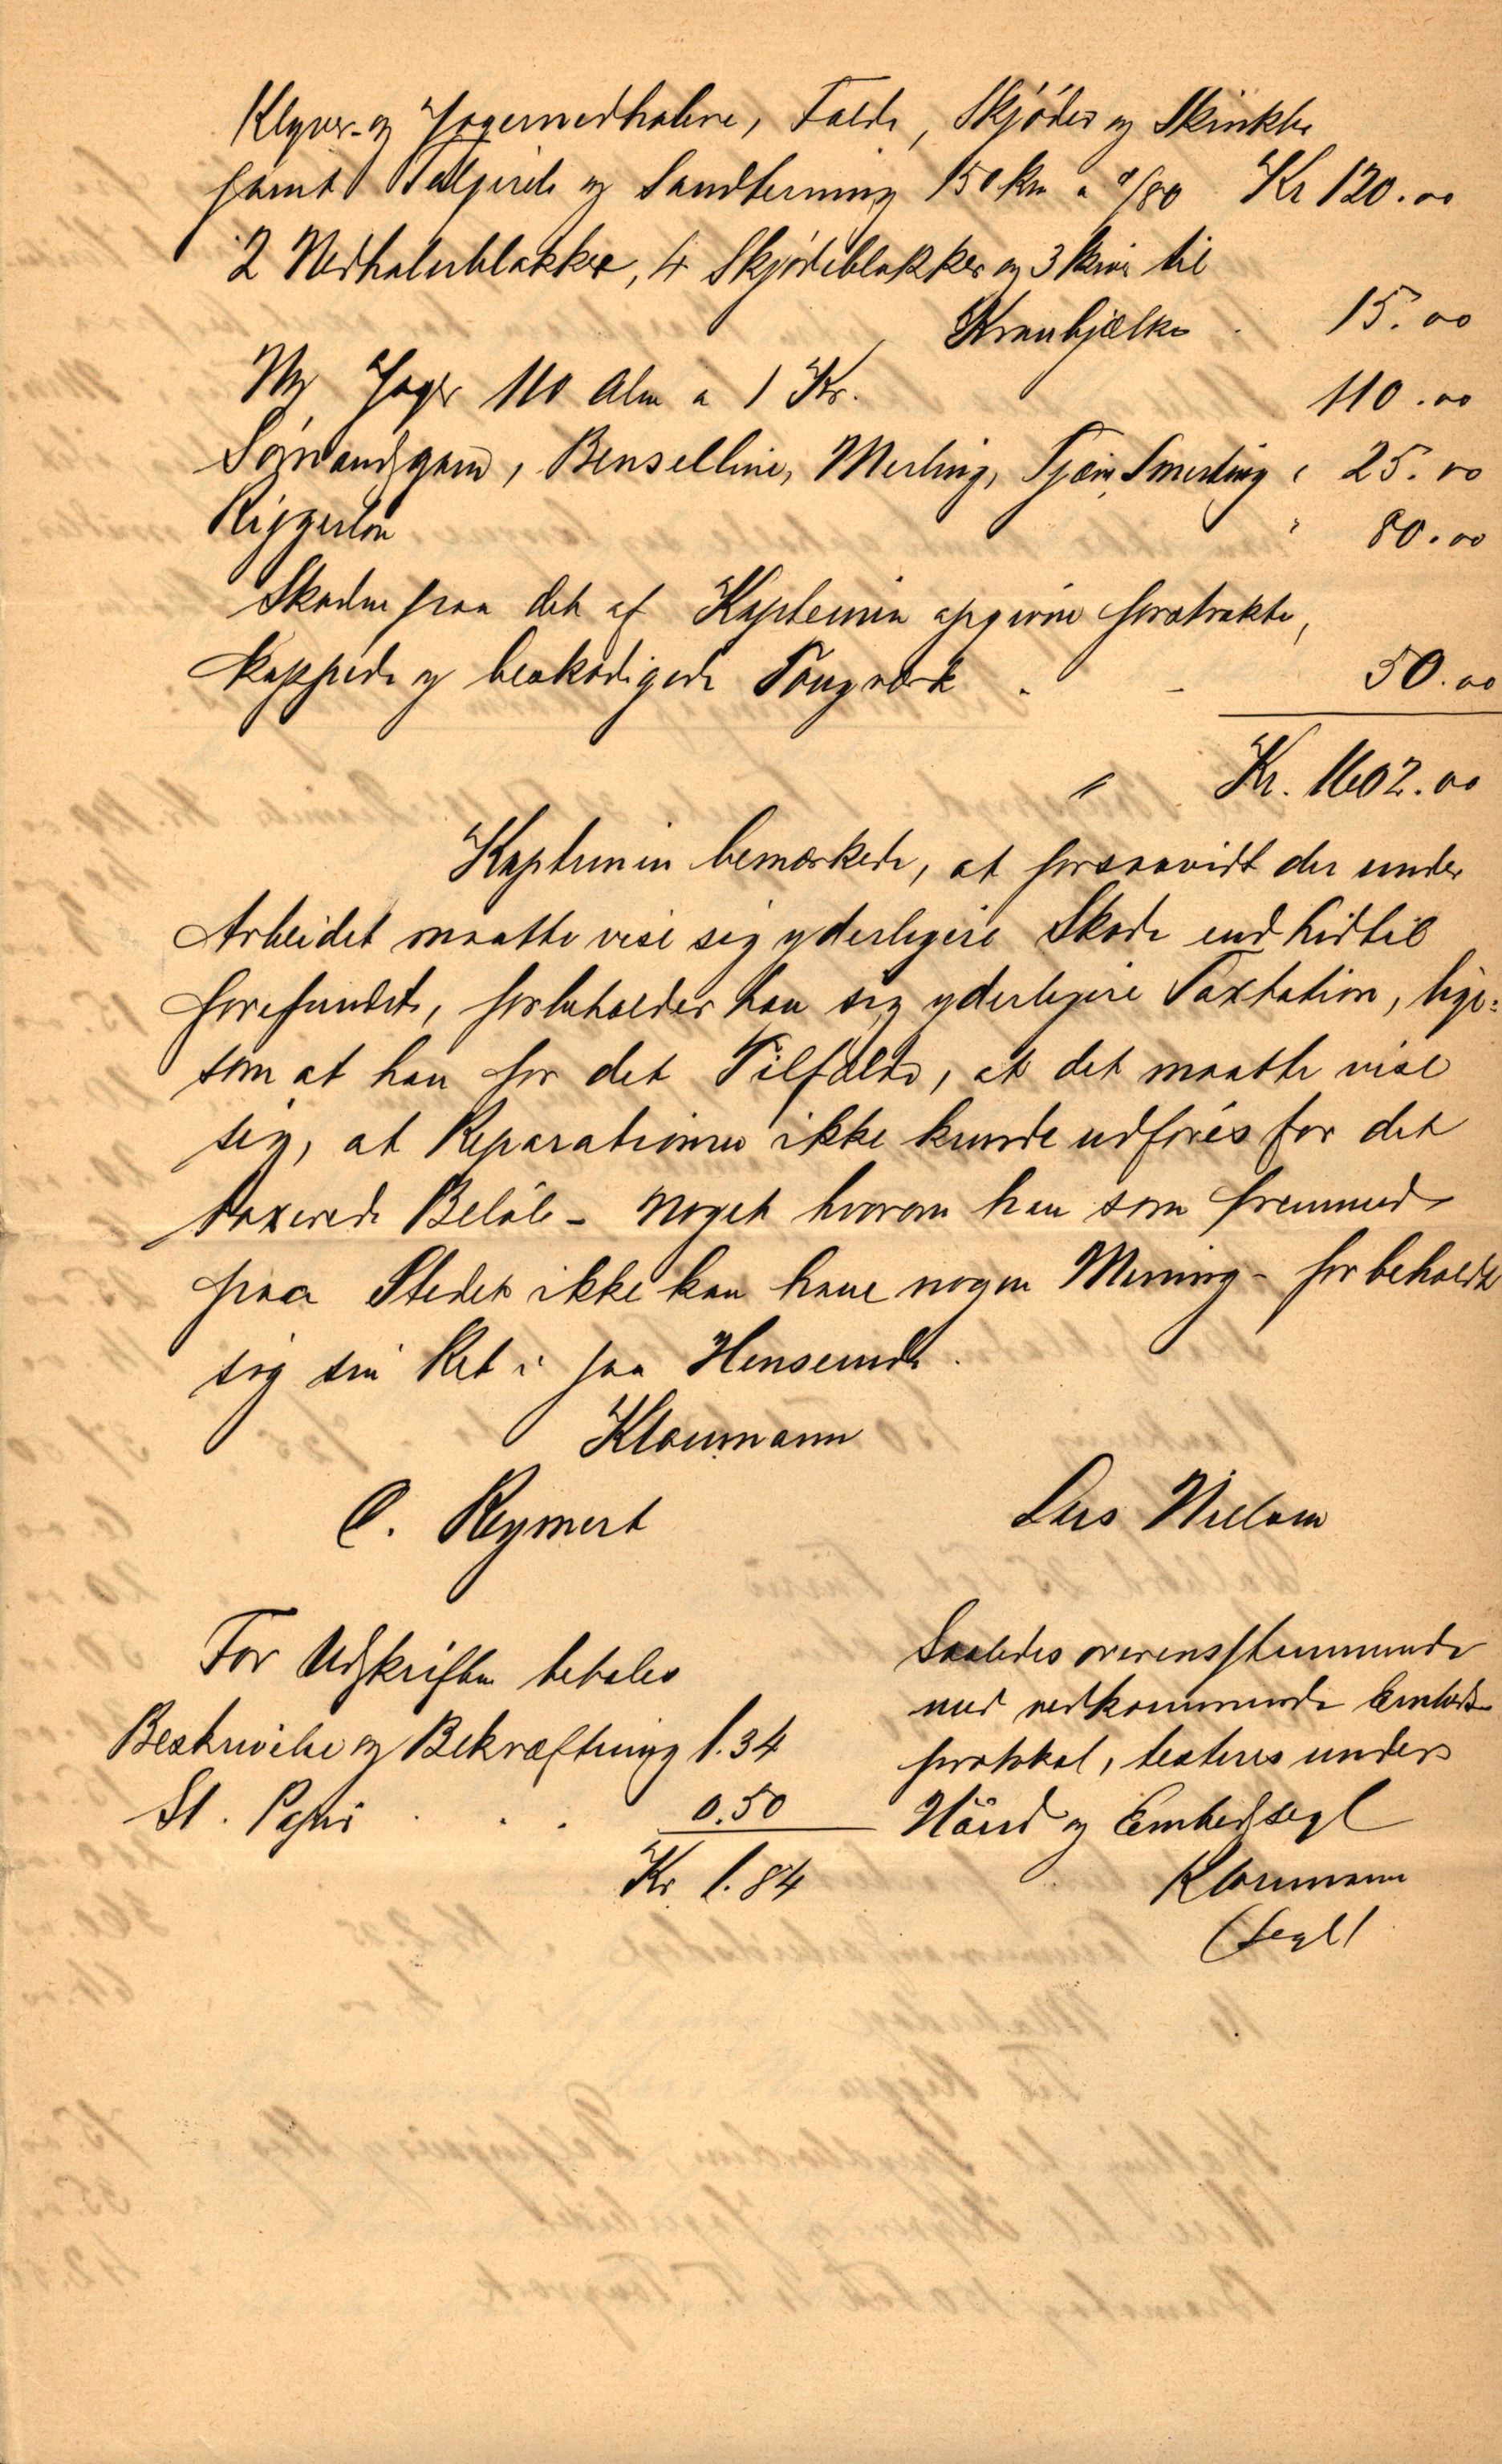 Klyver- og Jagernedhalere, Falde, Skjøder og Skinkle
samt Talgreb og Sandterning 150 km a "/80 Kr 120.00
2 Nedhalerblokker, 4 Skjødeblokker og 3 Skiver til
Kranbjælke . 15.00
Ny Jager 110 Alm a 1 Kr. 110.00
Sømandsgarn, Benselline, Merling, Tjære, Smerting " 25.00
Riggerløn " 80.00
Skaden paa det af Kapteinen opgivne forstrakte,
kappede og beskadigede Tougværk . - 50.00
" Kr. 1602.00
Kapteinen bemærkede, at forsaavidt der under
Arbeidet maatte vise sig yderligere Skade end hidtil
forefundet, forbeholder han sig yderligere Taxtation, lige=
som at han for det Tilfælde, at det maatte vise
sig, at Reparationen ikke kunde udføres for det
taxerede Beløb - noget hvorom han som fremmed
paa Stedet ikke kan have nogen Mening - forbeholdt
sig sin Ret i saa Henseende.
Kloumann
C. Reymert Lars Nielsen
For Udskriften betales
Beskrivelse og Bekræftning 1.34
St. Papir . . . 0.50
Kr 1.84
Saaledes overensstemmende
med vedkommende Embeds-
protokol, testeres under
Haand og Embedssegl
Kloumann
(Segl)